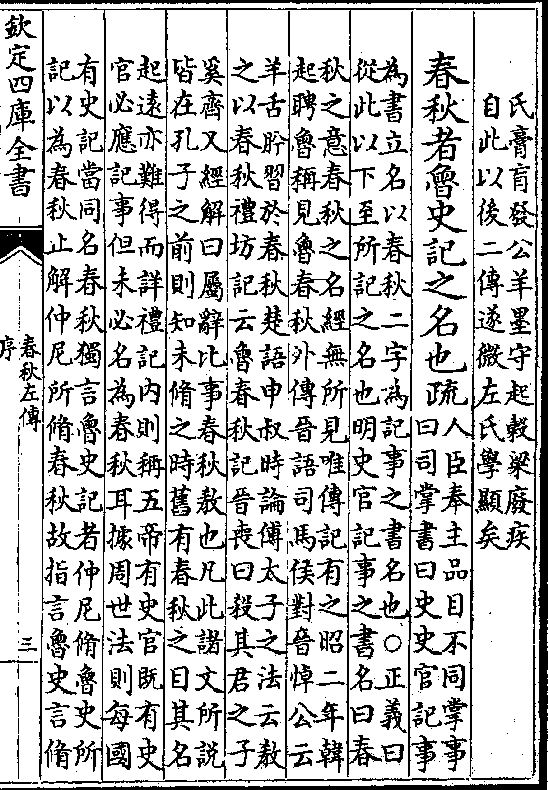 氏膏肓發公羊墨守起穀梁廢疾
自此以後二傳遂微左氏學顯矣
春秋者魯史記之名也疏
人臣奉主品目不同掌事
曰司掌書曰史史官記事
為書立名以春秋二字為記事之書名也○正義曰
從此以下至所記之名也明史官記事之書名曰春
秋之意春秋之名經無所見唯傳記有之昭二年韓
起聘魯稱見魯春秋外傳晉語司馬侯對晉悼公云
羊舌肸習於春秋楚語申叔時論傅太子之法云教
之以春秋禮坊記云魯春秋記晉喪曰殺其君之子
奚齊又經解曰屬辭比事春秋教也凡此諸文所說
皆在孔子之前則知未脩之時舊有春秋之目其名
起遠亦難得而詳禮記內則稱五帝有史官既有史
官必應記事但未必名為春秋耳據周世法則每國
有史記當同名春秋獨言魯史記者仲尼脩魯史所
記以為春秋止解仲尼所脩春秋故指言魯史言脩
欽定四庫全書
春秋左傳
序
三